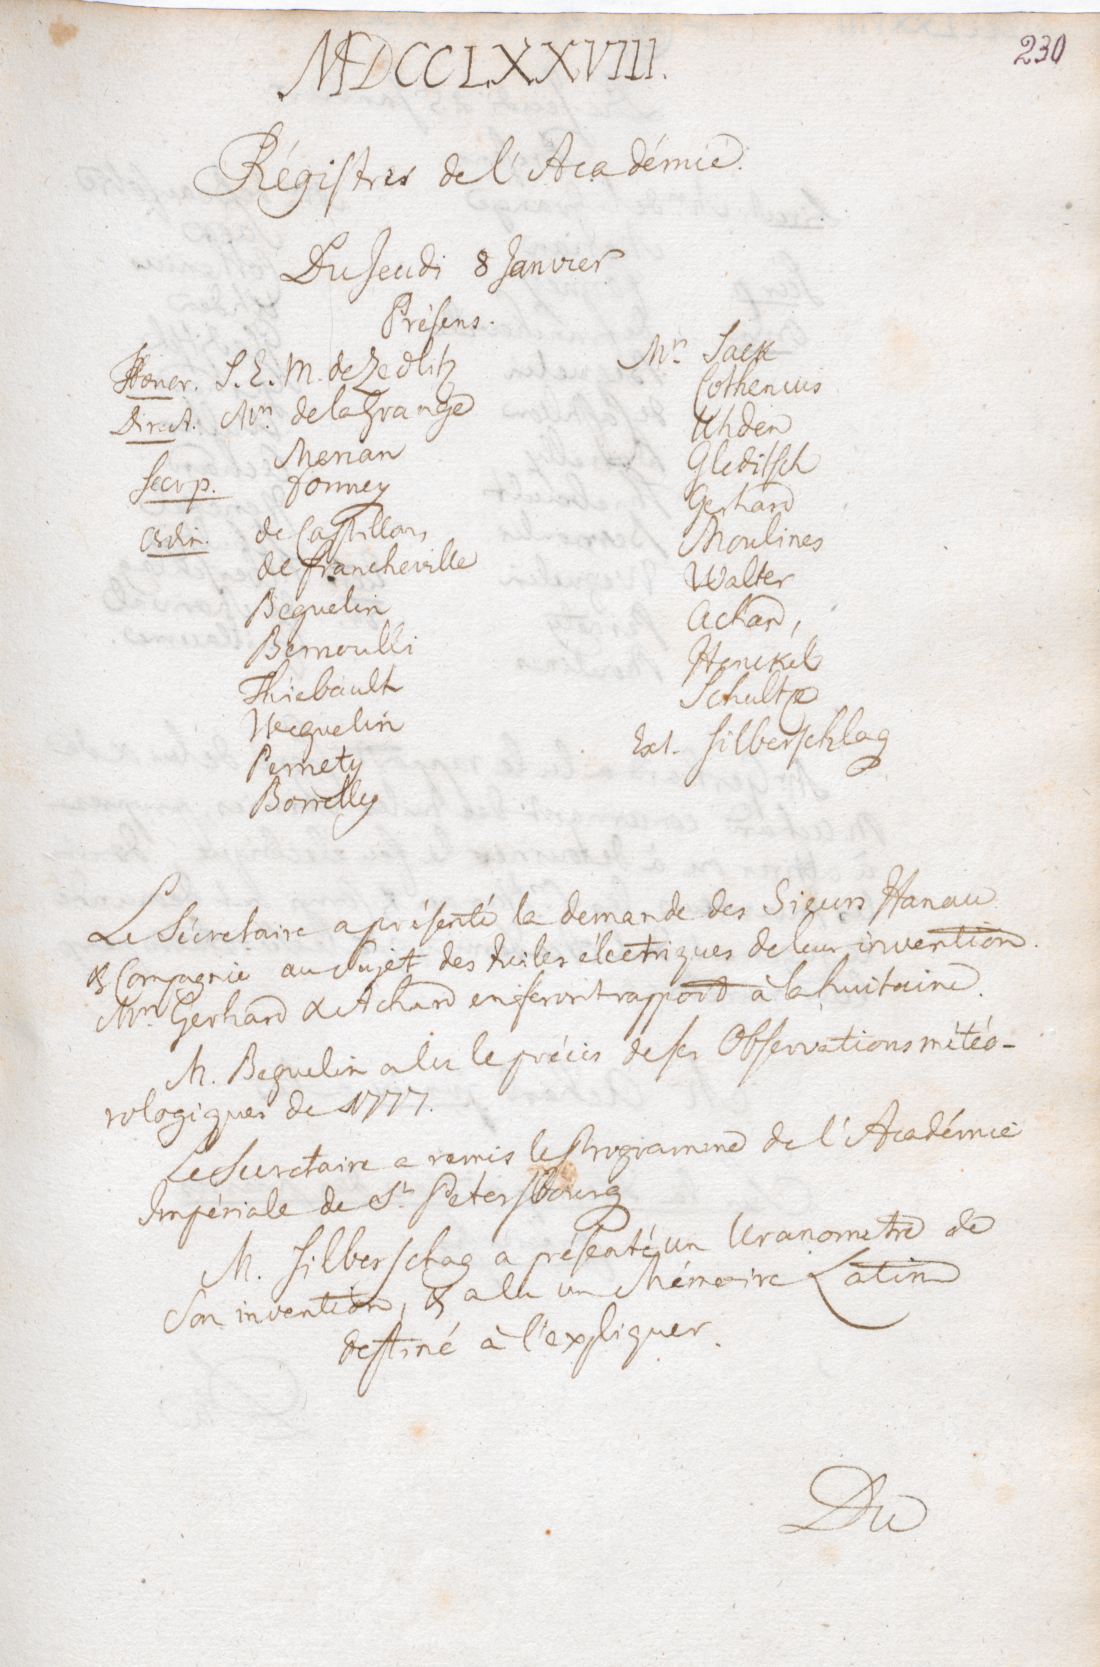 230
MDCCLXXVIII.
Régistres de l'Académie.
Du Jeudi 8 Janvier
Présens.
Honor. S. E. M. de Zedlitz
Direct. Mrs. de la Grange
Merian
Secr. p. Formey
Ordin. de Castillon
de Francheville
Beguelin
Bernoulli
Thiebault
Weguelin
Pernety
Borrelly
Mrs Sack
Cothenius
Uhden
Gleditsch
Gerhard
Moulines
Walter
Achard,
Henckel
Schultze
Ext. Silberschlag
Le Sécretaire a présenté la demande des Sieurs Hanau
& Compagnie au sujet des tuiles électriques de leur invention.
Mrs Gerhard & Achard en feront rapport à la huitaine.
M. Beguelin a lu le précis de ses Observations météo-
rologiques de 1777.
Le Secretaire a remis le Programme de l'Académie
Impériale de St. Petersbourg
M. Silberschag a présenté un Uranometre de
son invention, & a lu un Mémoire Latin
destiné à l'expliquer.
Du